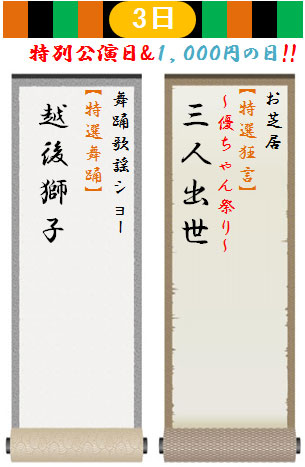 3日
特別公演日&1,000円の日!!
お芝居
【特選狂言】
～優ちゃん祭り～
三人出世
舞踊歌謡ショー
【特選舞踊】
越後獅子